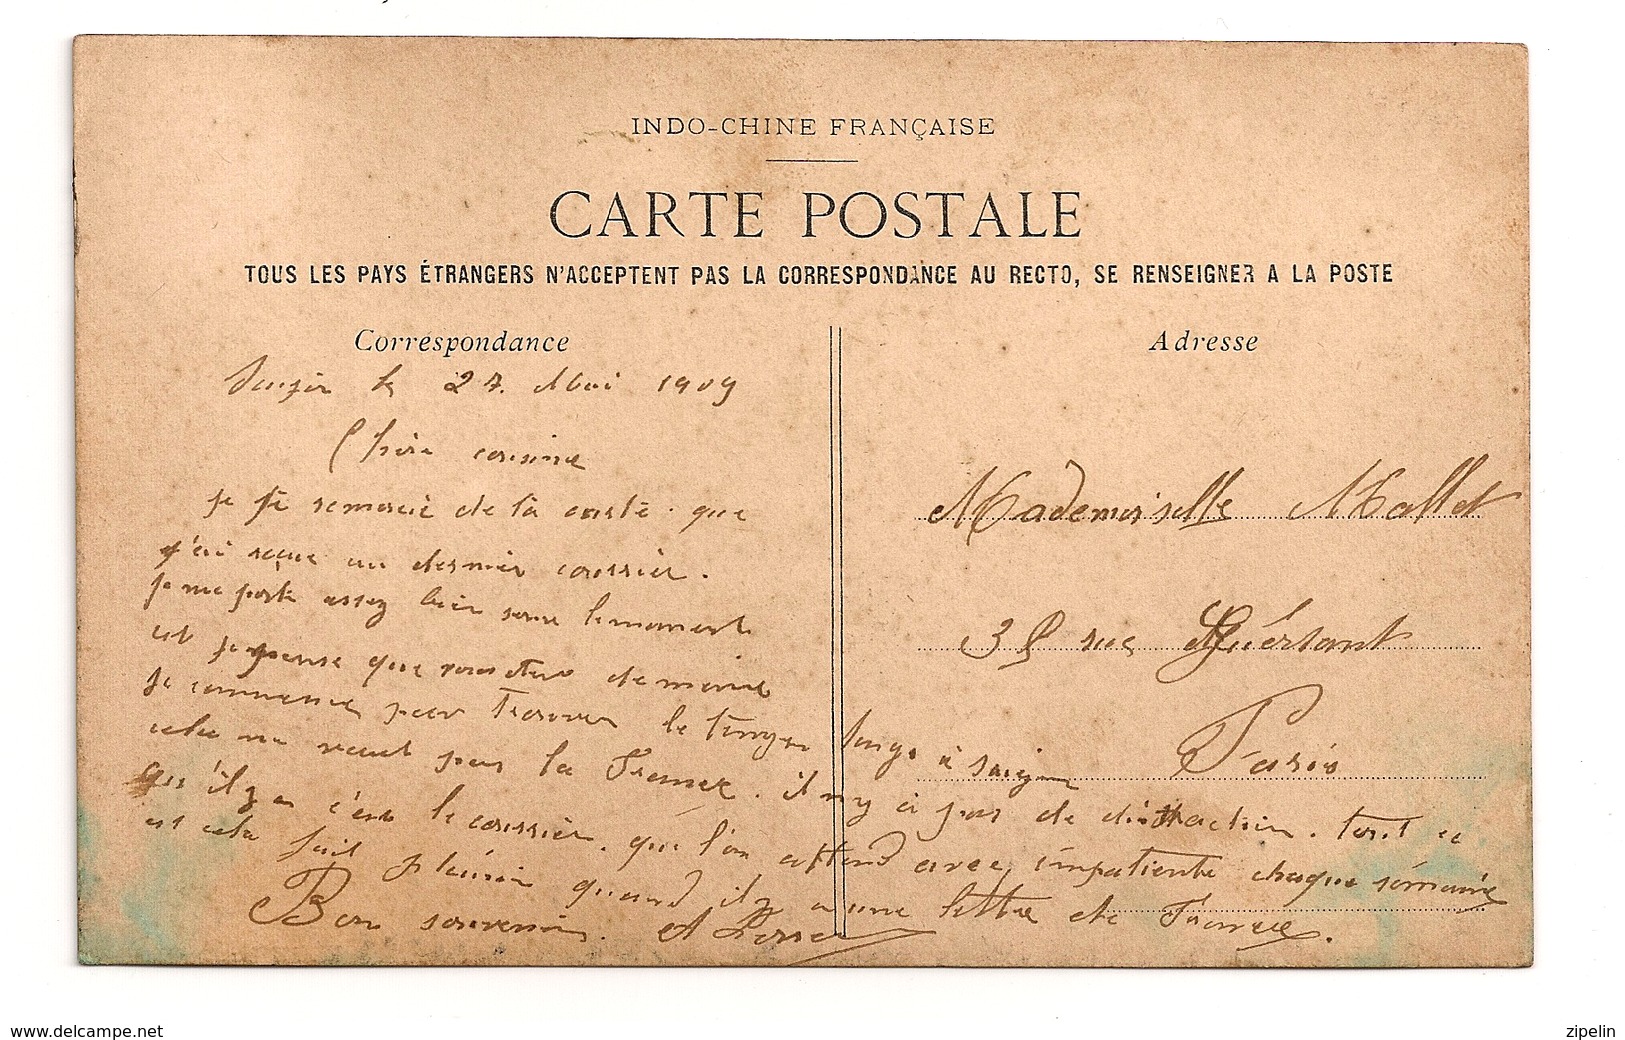 INDO-CHINE FRANÇAISE
CARTE POSTALE
TOUS LES PAYS ÉTRANGERS N'ACCEPTENT PAS LA CORRESPONDANCE AU RECTO, SE RENSEIGNER A LA POSTE
Correspondance
le 27. Mai 1909
Chère cousine
je te remercie de ta carte que
j'ai reçue au dernier courrier.
je me porte assez bien pour le moment
et je pense que vous êtes de même
je commence par trouver le temps long à saigon
cela ne vaut pas la France. il n'y a pas de distraction. tout ce
qu'il y a c'est le courrier. que l'on attend avec impatiente chaque semaine
et cela fait plaisir quand il y a une lettre de France.
Bon souvenir.
Adresse
Mademoiselle Mallet
35 rue Guersant
Paris
www.delcampe.net
zipelin